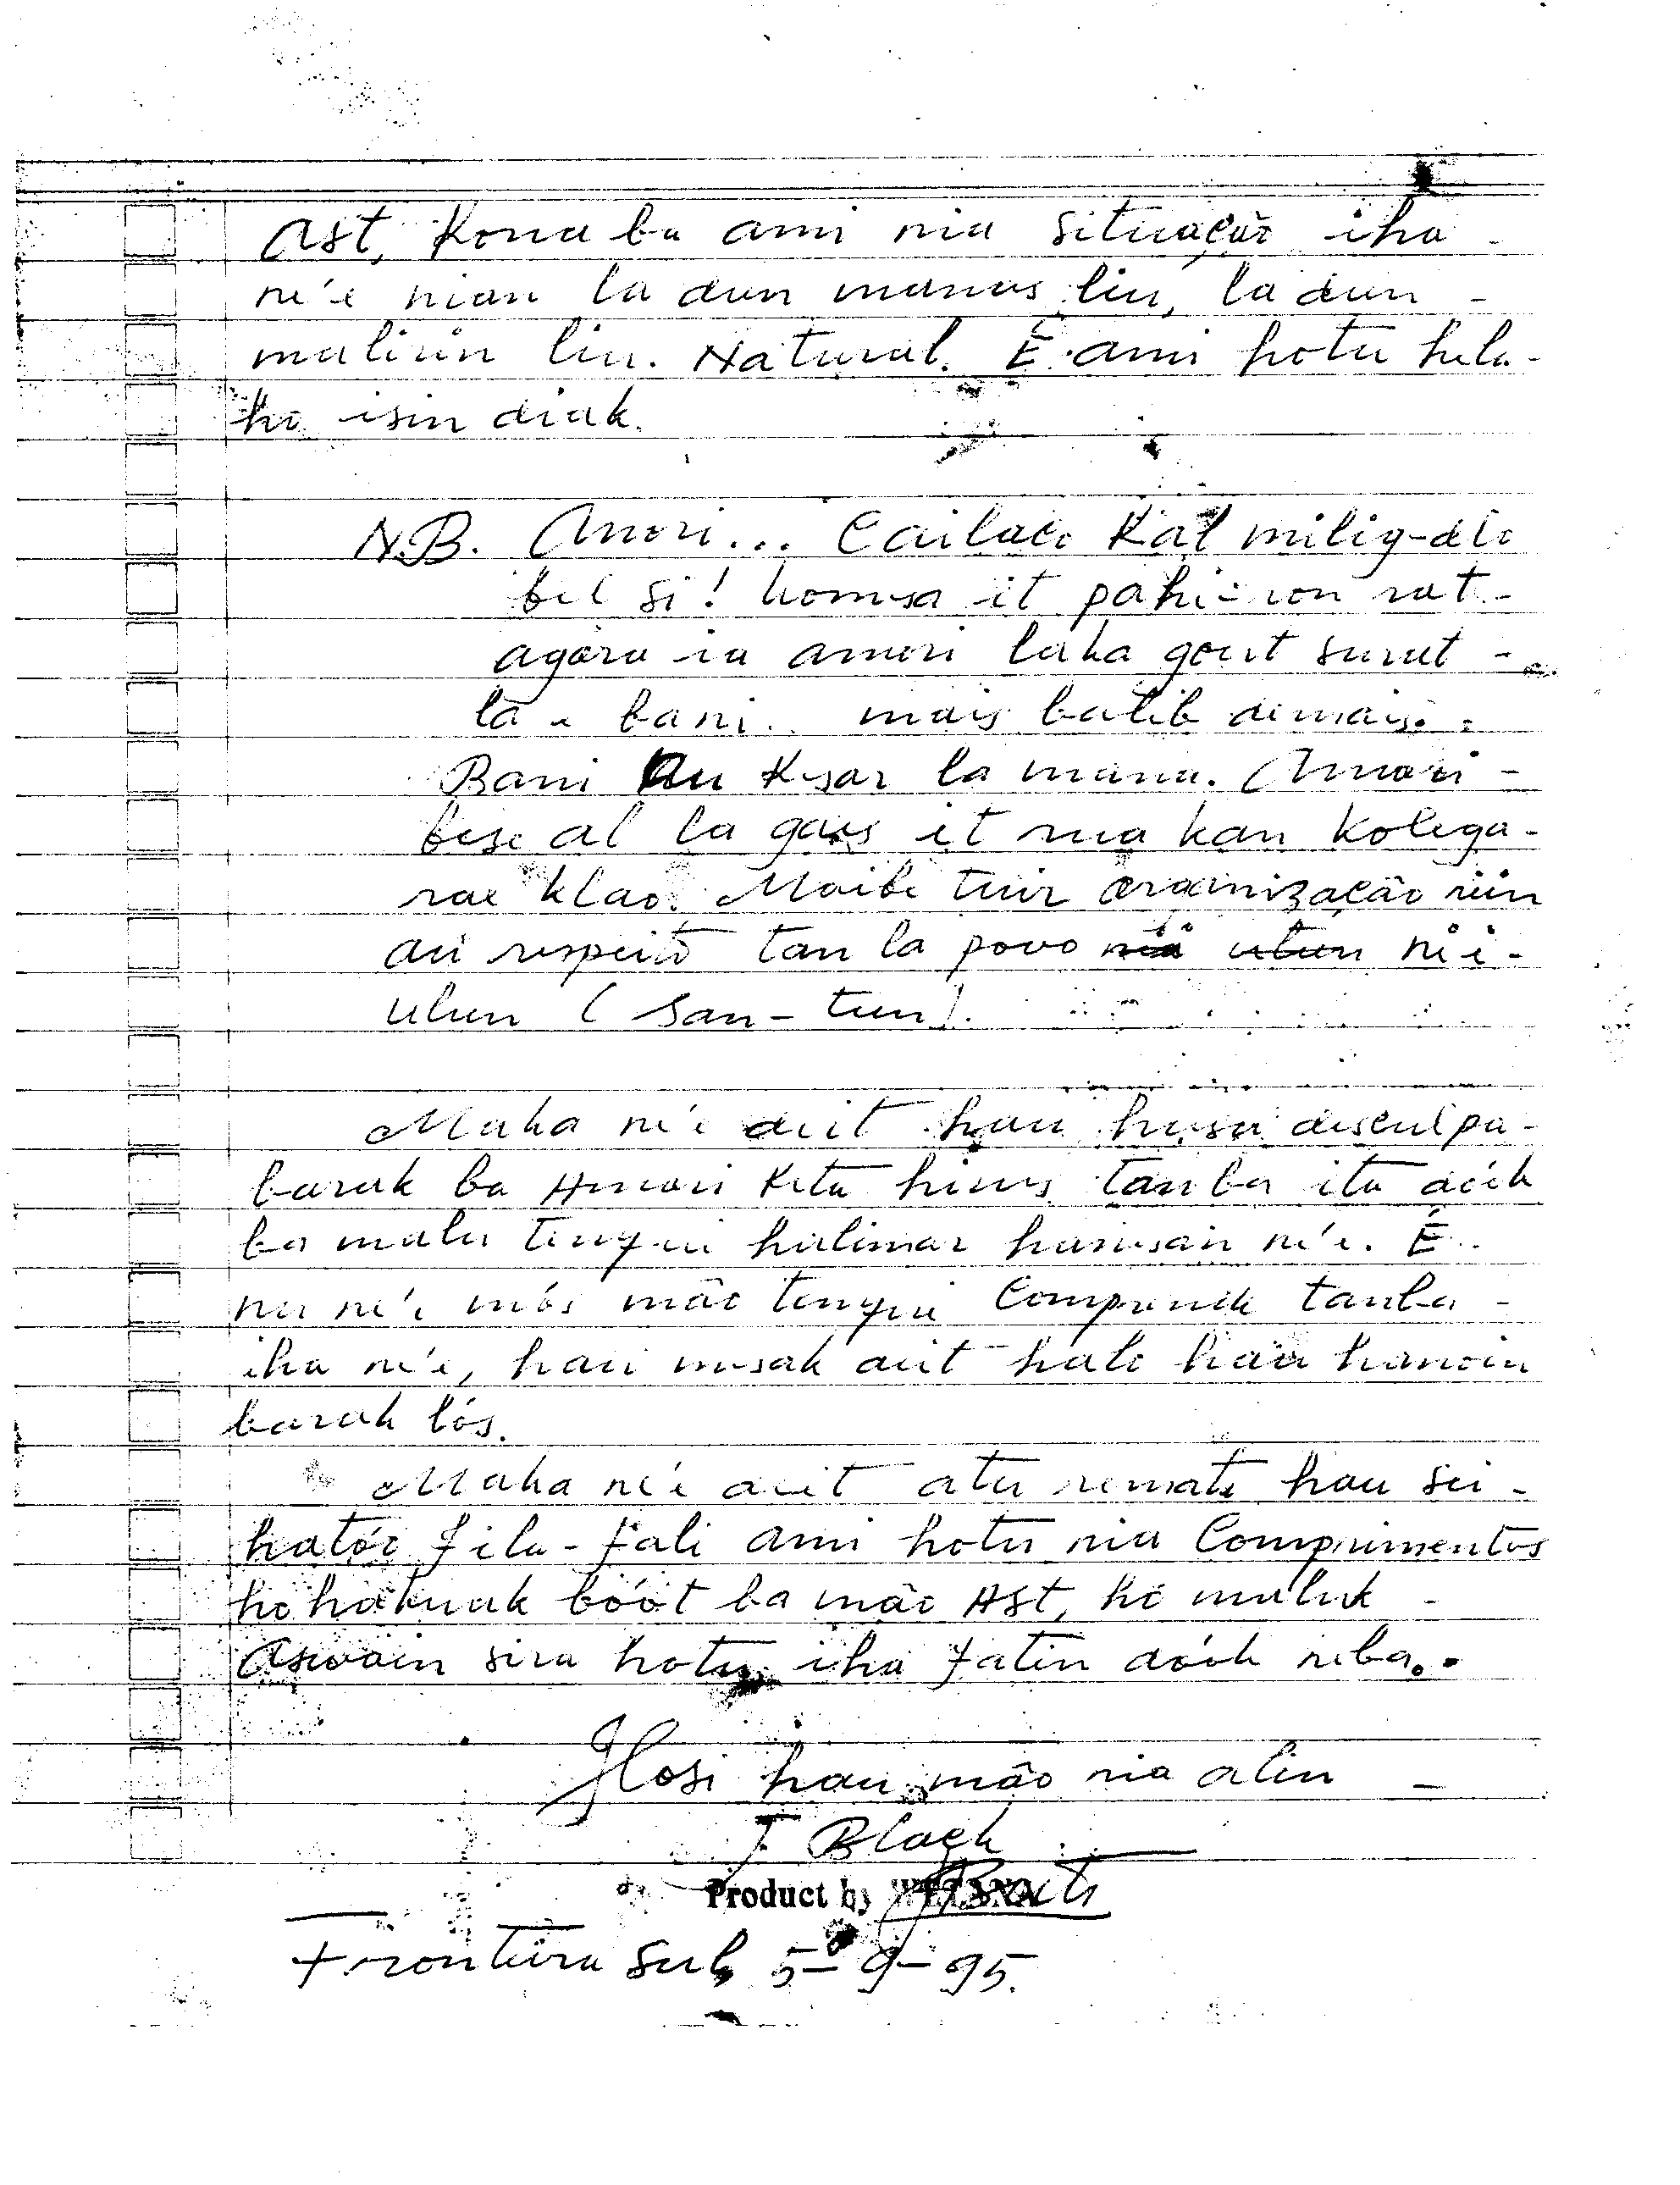 Ast, Kona ba ami nia situação iha -
ne'e nian la dun manas liu, la dun -
malirin liu. Natural. É ami hotu hela -
ho isin diak.
N.B. Amori... Cailaco Kal milig-delo
bel si! homsa it pahi-ion rat -
agora ia amori laka gout surut -
la e bani.. mais balib demais.
Bani au Ksar la mana. Amori -
bese al la gais it mia kan kolega -
rae klao. Maibe tuir organização niin
au respeito tan la povo nia ulun ni i -
ulun (San-tun).
Maka ne'e deit hau husu desculpa -
barak ba Amori keta hirus tanba ita dóok
ba malu tenque halimar hanesan ne'e. É
nu ne'e mós mâo tenque comprende tanba -
iha ne'e, hau mesak deit halo hau hanoin
barak lós.
Maka ne'e deit atu remata hau sei -
hatóo fila-fali ami hotu nia Comprimentos
ho hakuak bóót ba mâo Ast, ho maluk -
Aswain sira hotu iha fatin dóok neba..
Hosi hau mâo nia alin -
J. Black
Product by
Fronteira Sul, 5-9-95.